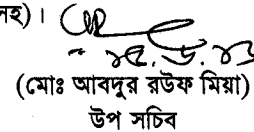 সহ)।
(মোঃ আবদুর রউফ মিয়া)
উপ সচিব